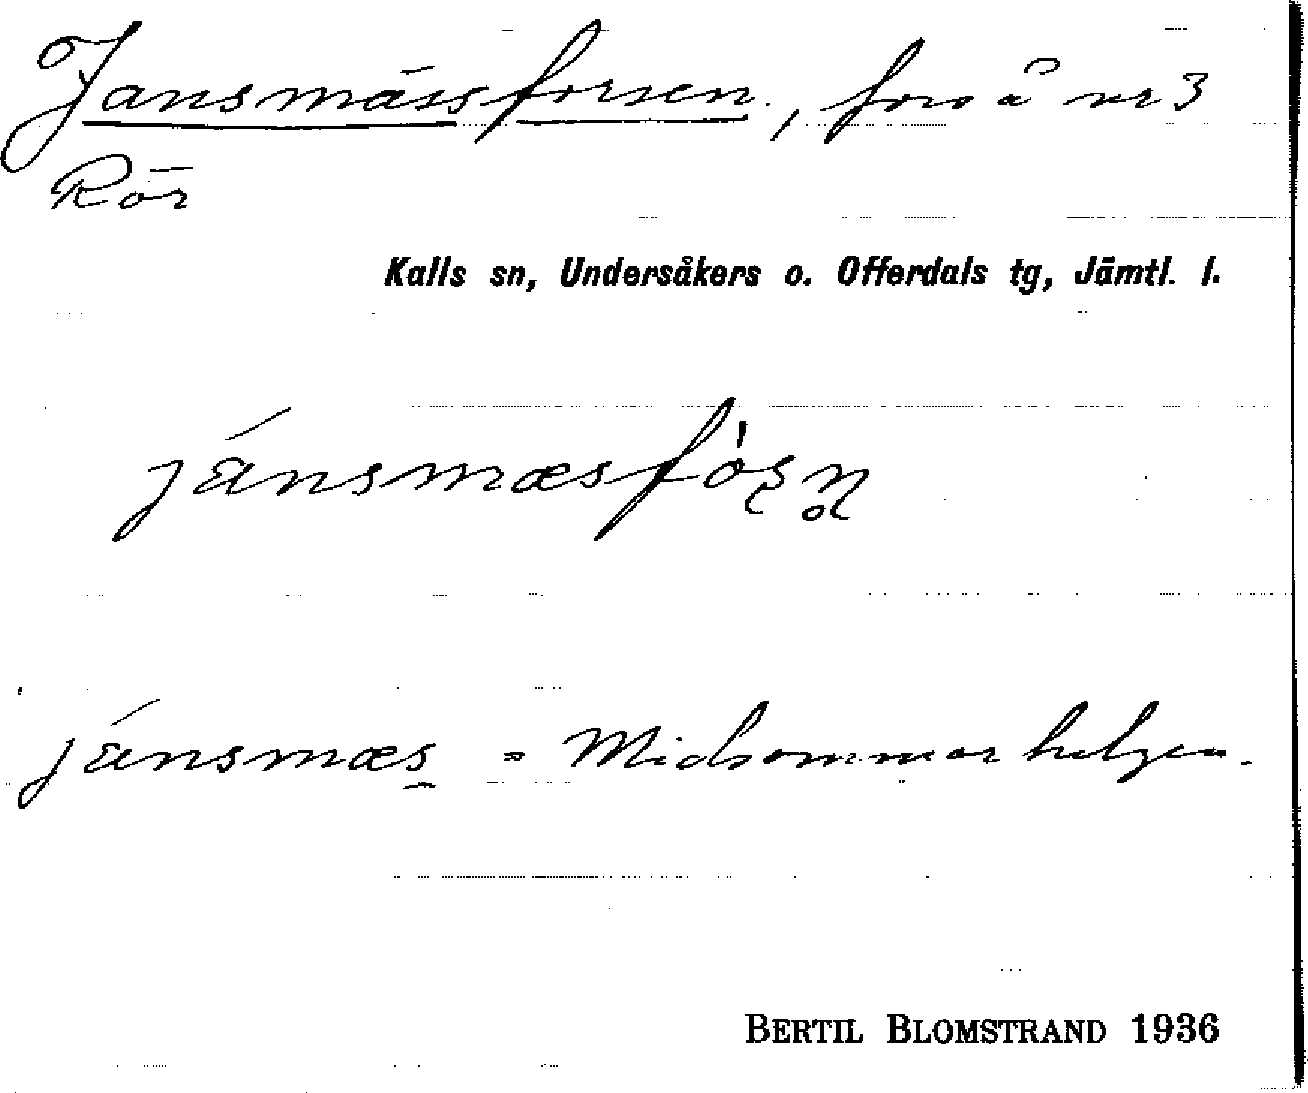 Jansmässforsen, fors å nr 3
Rör
Kalls sn, Undersåkers o. Offerdals tg, Jämtl. l.
jánsmæsfóʂn̥
jánsmæs = Midsommarhelgen.
BERTIL BLOMSTRAND 1936